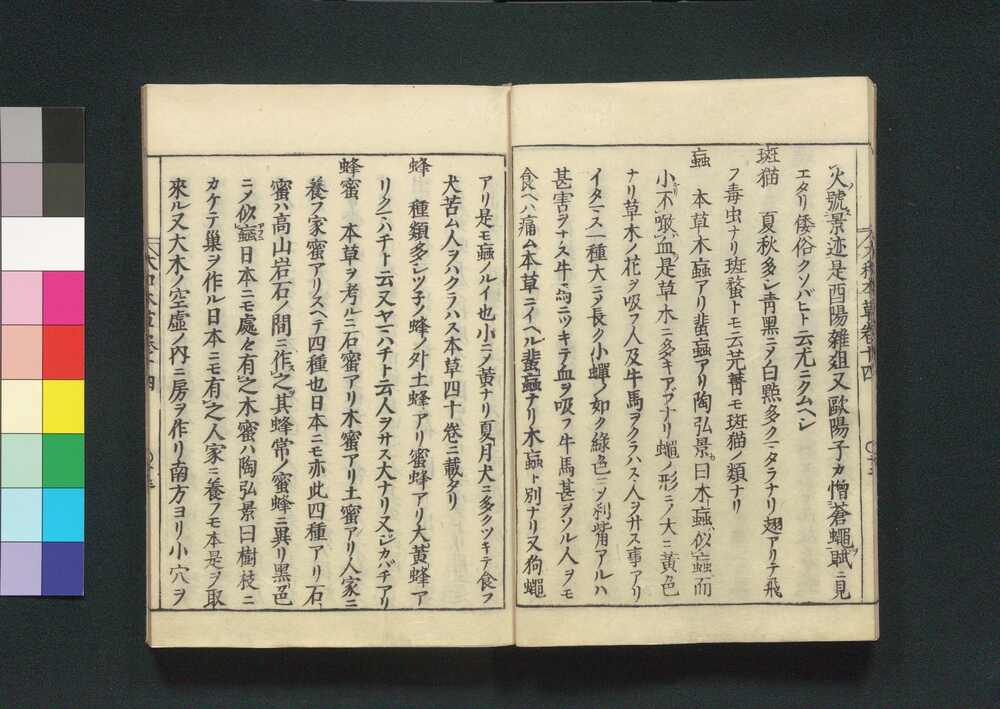 火號景迹是酉陽雜俎又歐陽子カ憎蒼蠅賦ニ見
エタリ倭俗クソバヒト云尤ニクムヘシ
斑猫 夏秋多シ青黑ニ乄白㸃多クニタラナリ翅アリテ飛
フ毒虫ナリ斑蝥トモ云芫菁モ斑猫ノ類ナリ
蝱 本草木蝱アリ蜚蝱アリ陶弘景曰木蝱似蝱而
小不噉血是草木ニ多キアブナリ蠅ノ形ニ乄大ニ黄色
ナリ草木ノ花ヲ吸フ人及牛馬ヲクラハス人ヲサス事アリ
イタマス一種大ニ乄長ク小蟬ノ如ク綠色ニ乄刹觜アルハ
甚害ヲナス牛馬ニツキテ血ヲ吸フ牛馬甚ヲソル人ヲモ
食ヘハ痛ム本草ニイヘル蜚蝱ナリ木蝱ト別ナリ又狗蠅
アリ是モ蝱ノルイ也小ニ乄黄ナリ夏月犬ニ多クツキテ食フ
犬苦ム人ヲハクラハス本草四十卷ニ載タリ
蜂 種類多シツ子ノ蜂ノ外土蜂アリ蜜蜂アリ大黄蜂ア
リクマハチト云又ヤマハチト云人ヲサス大ナリ又ジカバチアリ
蜂蜜 本草ヲ考ルニ石蜜アリ木蜜アリ土蜜アリ人家ニ
養フ家蜜アリスヘテ四種也日本ニモ亦此四種アリ石
蜜ハ高山岩石ノ間ニ作之其蜂常ノ蜜蜂ニ異リ黑色
ニ乄似蝱日本ニモ處々有之木蜜ハ陶弘景曰樹枝ニ
カケテ巢ヲ作ル日本ニモ有之人家ニ養フモ本是ヲ取
來ル又大木ノ空虛ノ内ニ房ヲ作リ南方ヨリ小穴ヲ